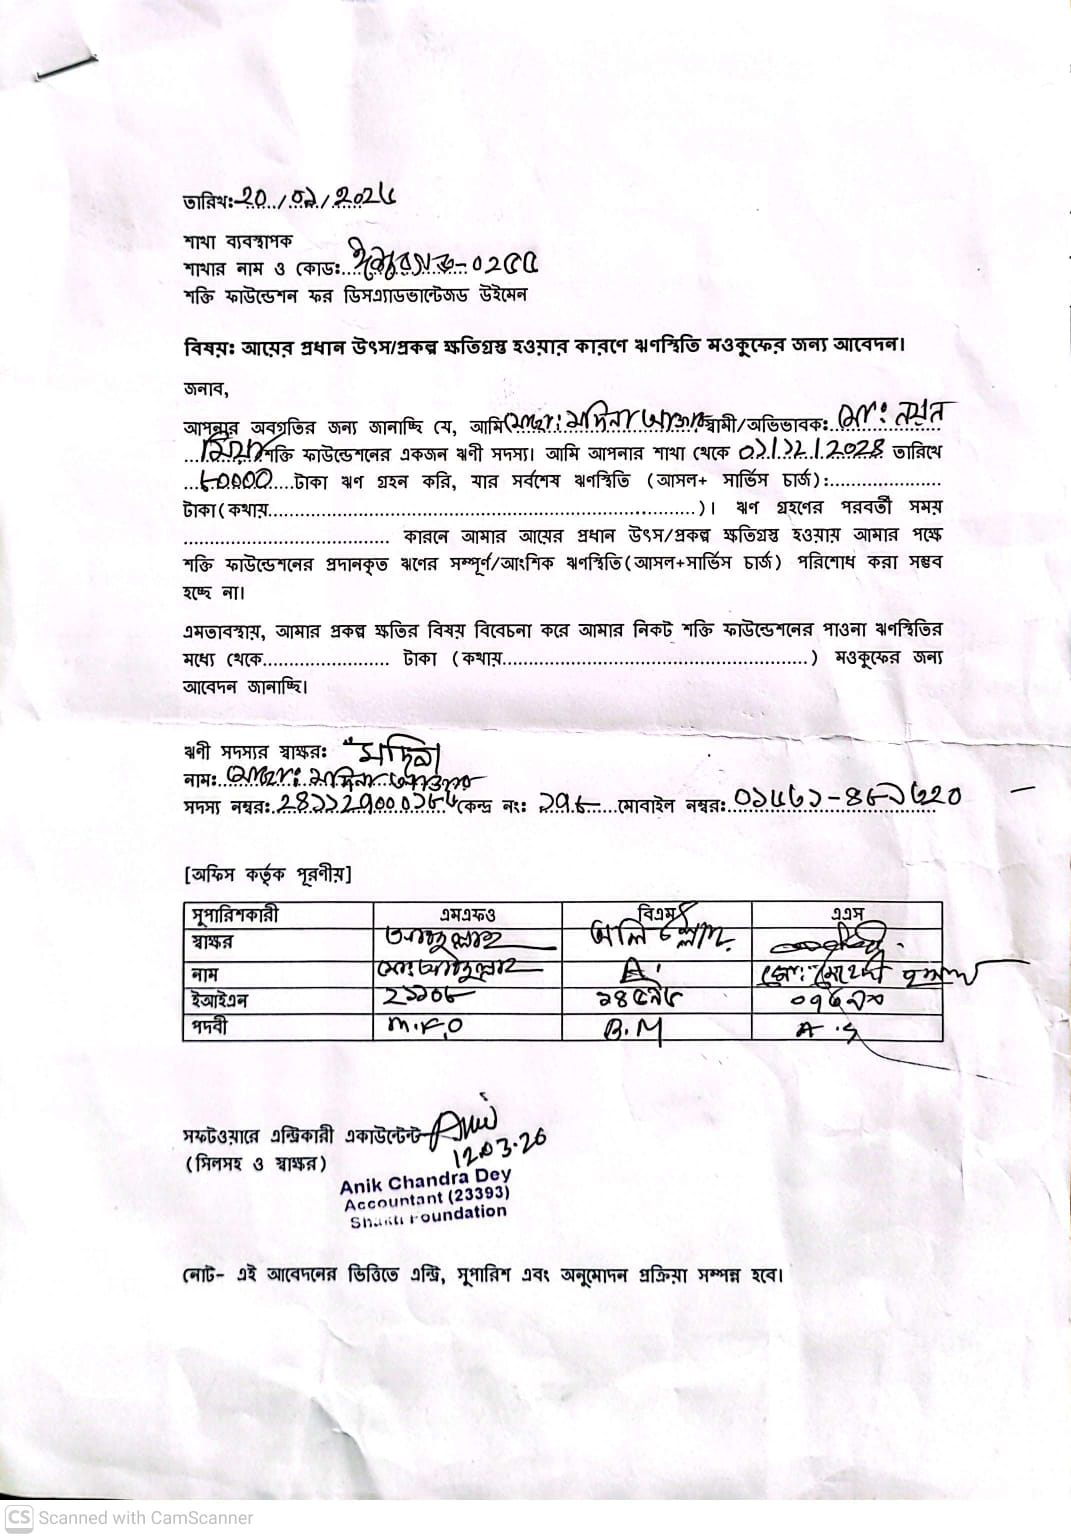 তারিখ:-20/০৯/২০২৫
শাখা ব্যবস্থাপক
শাখার নাম ও কোড:...-০২৫৫
শক্তি ফাউন্ডেশন ফর ডিসএ্যাডভান্টেজড উইমেন
বিষয়: আয়ের প্রধান উৎস/প্রকল্প ক্ষতিগ্রস্ত হওয়ার কারণে ঋণস্থিতি মওকুফের জন্য আবেদন।
জনাব,
আপনার অবগতির জন্য জানাচ্ছি যে, আমি মোছা: মদিনা আক্তার স্বামী/অভিভাবক: মো: নয়ন
মিয়া শক্তি ফাউন্ডেশনের একজন ঋণী সদস্য। আমি আপনার শাখা থেকে ০১/১২/২০২৪ তারিখে
৮০০০০ টাকা ঋণ গ্রহন করি, যার সর্বশেষ ঋণস্থিতি (আসল+ সার্ভিস চার্জ):....................
টাকা(কথায়..........................................................................)। ঋণ গ্রহণের পরবর্তী সময়
.................................... কারনে আমার আয়ের প্রধান উৎস/প্রকল্প ক্ষতিগ্রস্ত হওয়ায় আমার পক্ষে
শক্তি ফাউন্ডেশনের প্রদানকৃত ঋণের সম্পূর্ণ/আংশিক ঋণস্থিতি(আসল+সার্ভিস চার্জ) পরিশোধ করা সম্ভব
হচ্ছে না।
এমতাবস্থায়, আমার প্রকল্প ক্ষতির বিষয় বিবেচনা করে আমার নিকট শক্তি ফাউন্ডেশনের পাওনা ঋণস্থিতির
মধ্যে থেকে...................... টাকা (কথায়.....................................................) মওকুফের জন্য
আবেদন জানাচ্ছি।
ঋণী সদস্যর স্বাক্ষর: মদিনা
নাম: মোছা: মদিনা আক্তার
সদস্য নম্বর: কেন্দ্র নং: ১৭৮ মোবাইল নম্বর:
[অফিস কর্তৃক পূরণীয়]
সুপারিশকারী এমএফও বিএম এএস
স্বাক্ষর
নাম A.
ইআইএন ২১১০৮
পদবী M.F.O B.M A.S
সফটওয়ারে এন্ট্রিকারী একাউন্টেন্ট Anik
(সিলসহ ও স্বাক্ষর) 12.03.26
Anik Chandra Dey
Accountant (23393)
Shakti Foundation
নোট- এই আবেদনের ভিত্তিতে এন্ট্রি, সুপারিশ এবং অনুমোদন প্রক্রিয়া সম্পন্ন হবে।
CS Scanned with CamScanner